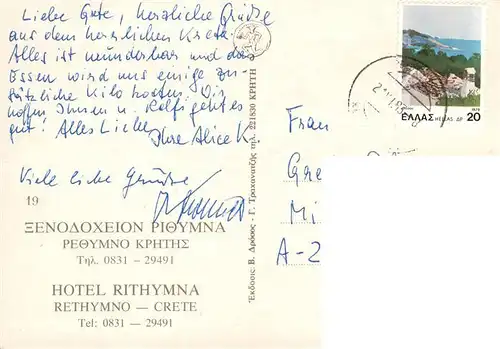 Liebe Grete, herzliche Grüße
aus dem herrlichen Kreta.
Alles ist wunderbar und das
Essen wird uns einige zu-
sätzliche Kilo kosten. Wir
hoffen, Ihnen u. Rolf geht es
gut! Alles Liebe
Ihre Alice K
Viele liebe Grüße
19
ΞΕΝΟΔΟΧΕΙΟΝ ΡΙΘΥΜΝΑ
ΡΕΘΥΜΝΟ ΚΡΗΤΗΣ
Τηλ. 0831 – 29491
HOTEL RITHYMNA
RETHYMNO — CRETE
Tel: 0831 – 29491
Έκδοσις: Β. Δρόσος - Γ. Τραχανατζής τηλ. 221830 ΚΡΗΤΗ
ΕΛΛΑΣ HELLAS ΔΡ 20
Frau
Gre
Mi
A-2